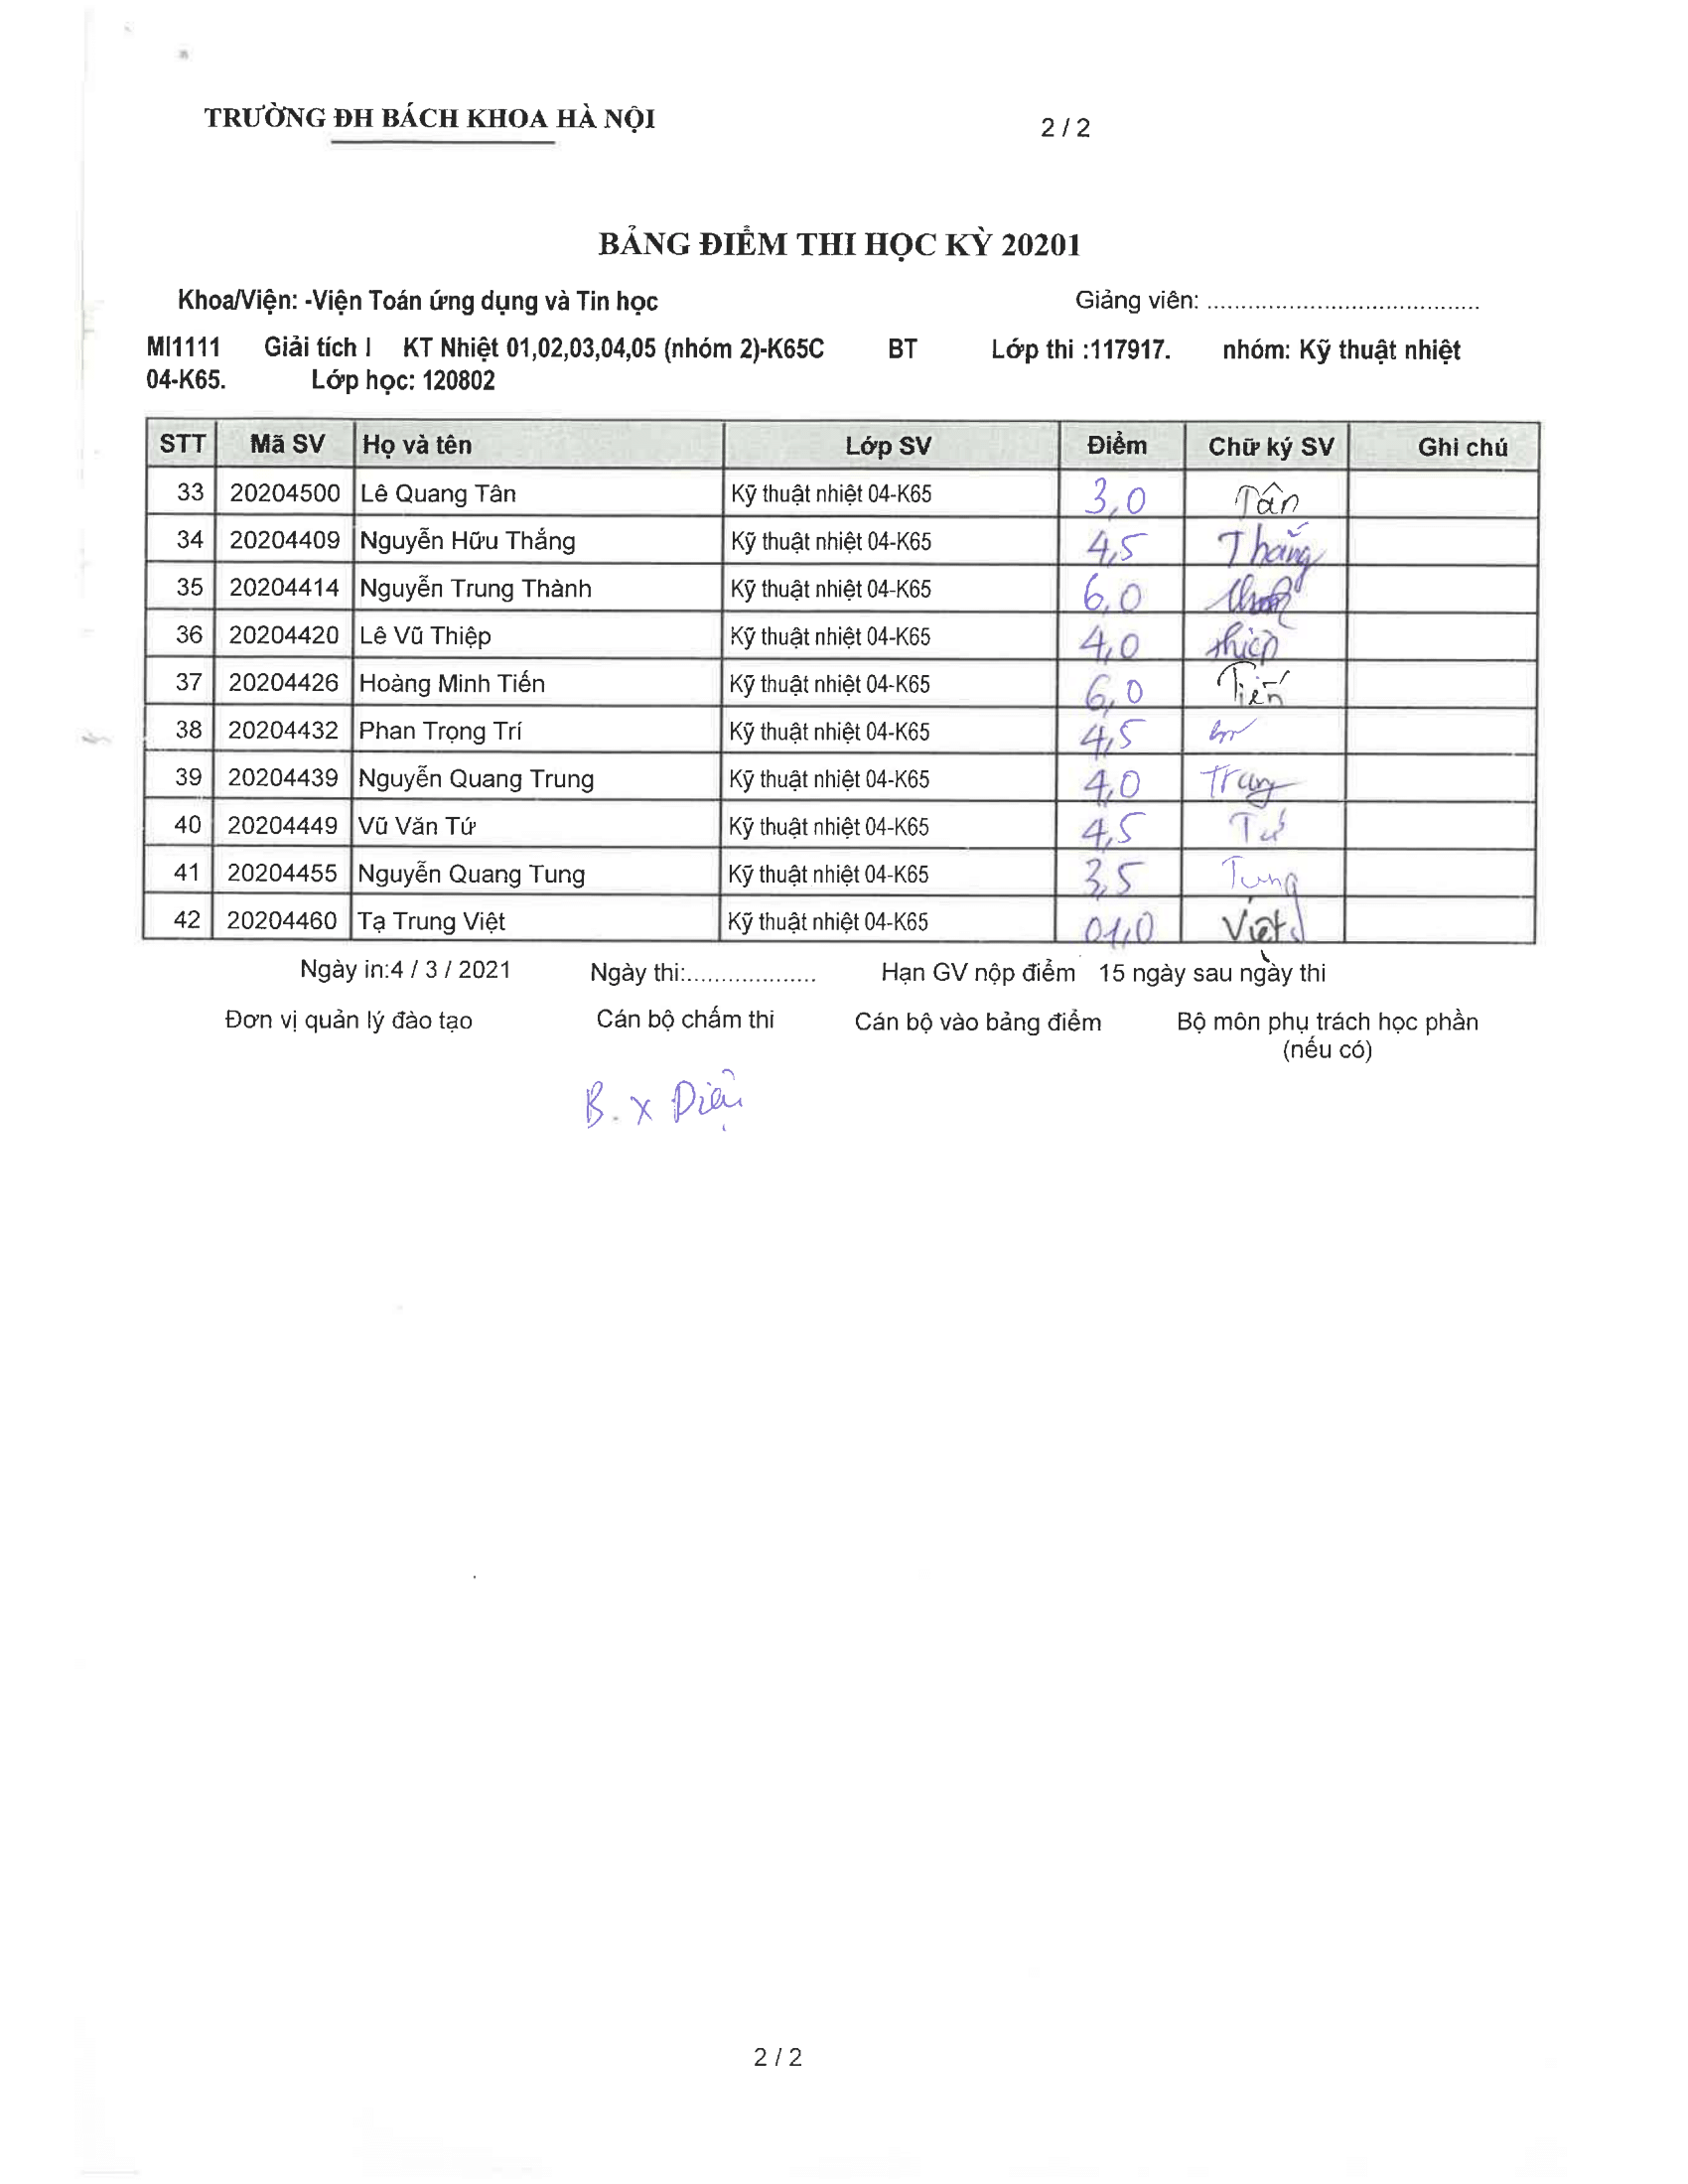 TRƯỜNG ĐH BÁCH KHOA HÀ NỘI 2 / 2
BẢNG ĐIỂM THI HỌC KỲ 20201
Khoa/Viện: -Viện Toán ứng dụng và Tin học Giảng viên: ........................................
MI1111 Giải tích I KT Nhiệt 01,02,03,04,05 (nhóm 2)-K65C BT Lớp thi :117917. nhóm: Kỹ thuật nhiệt
04-K65. Lớp học: 120802
STT Mã SV Họ và tên Lớp SV Điểm Chữ ký SV Ghi chú
33 20204500 Lê Quang Tân Kỹ thuật nhiệt 04-K65 3,0 Tân
34 20204409 Nguyễn Hữu Thắng Kỹ thuật nhiệt 04-K65 4,5 Thắng
35 20204414 Nguyễn Trung Thành Kỹ thuật nhiệt 04-K65 6,0
36 20204420 Lê Vũ Thiệp Kỹ thuật nhiệt 04-K65 4,0 Thiệp
37 20204426 Hoàng Minh Tiến Kỹ thuật nhiệt 04-K65 6,0 Tiến
38 20204432 Phan Trọng Trí Kỹ thuật nhiệt 04-K65 4,5
39 20204439 Nguyễn Quang Trung Kỹ thuật nhiệt 04-K65 4,0 Trung
40 20204449 Vũ Văn Tứ Kỹ thuật nhiệt 04-K65 4,5 Tứ
41 20204455 Nguyễn Quang Tung Kỹ thuật nhiệt 04-K65 3,5 Tung
42 20204460 Tạ Trung Việt Kỹ thuật nhiệt 04-K65 01,0 Việt
Ngày in:4 / 3 / 2021 Ngày thi:................... Hạn GV nộp điểm 15 ngày sau ngày thi
Đơn vị quản lý đào tạo Cán bộ chấm thi Cán bộ vào bảng điểm Bộ môn phụ trách học phần
(nếu có)
B. X Diệu
2 / 2